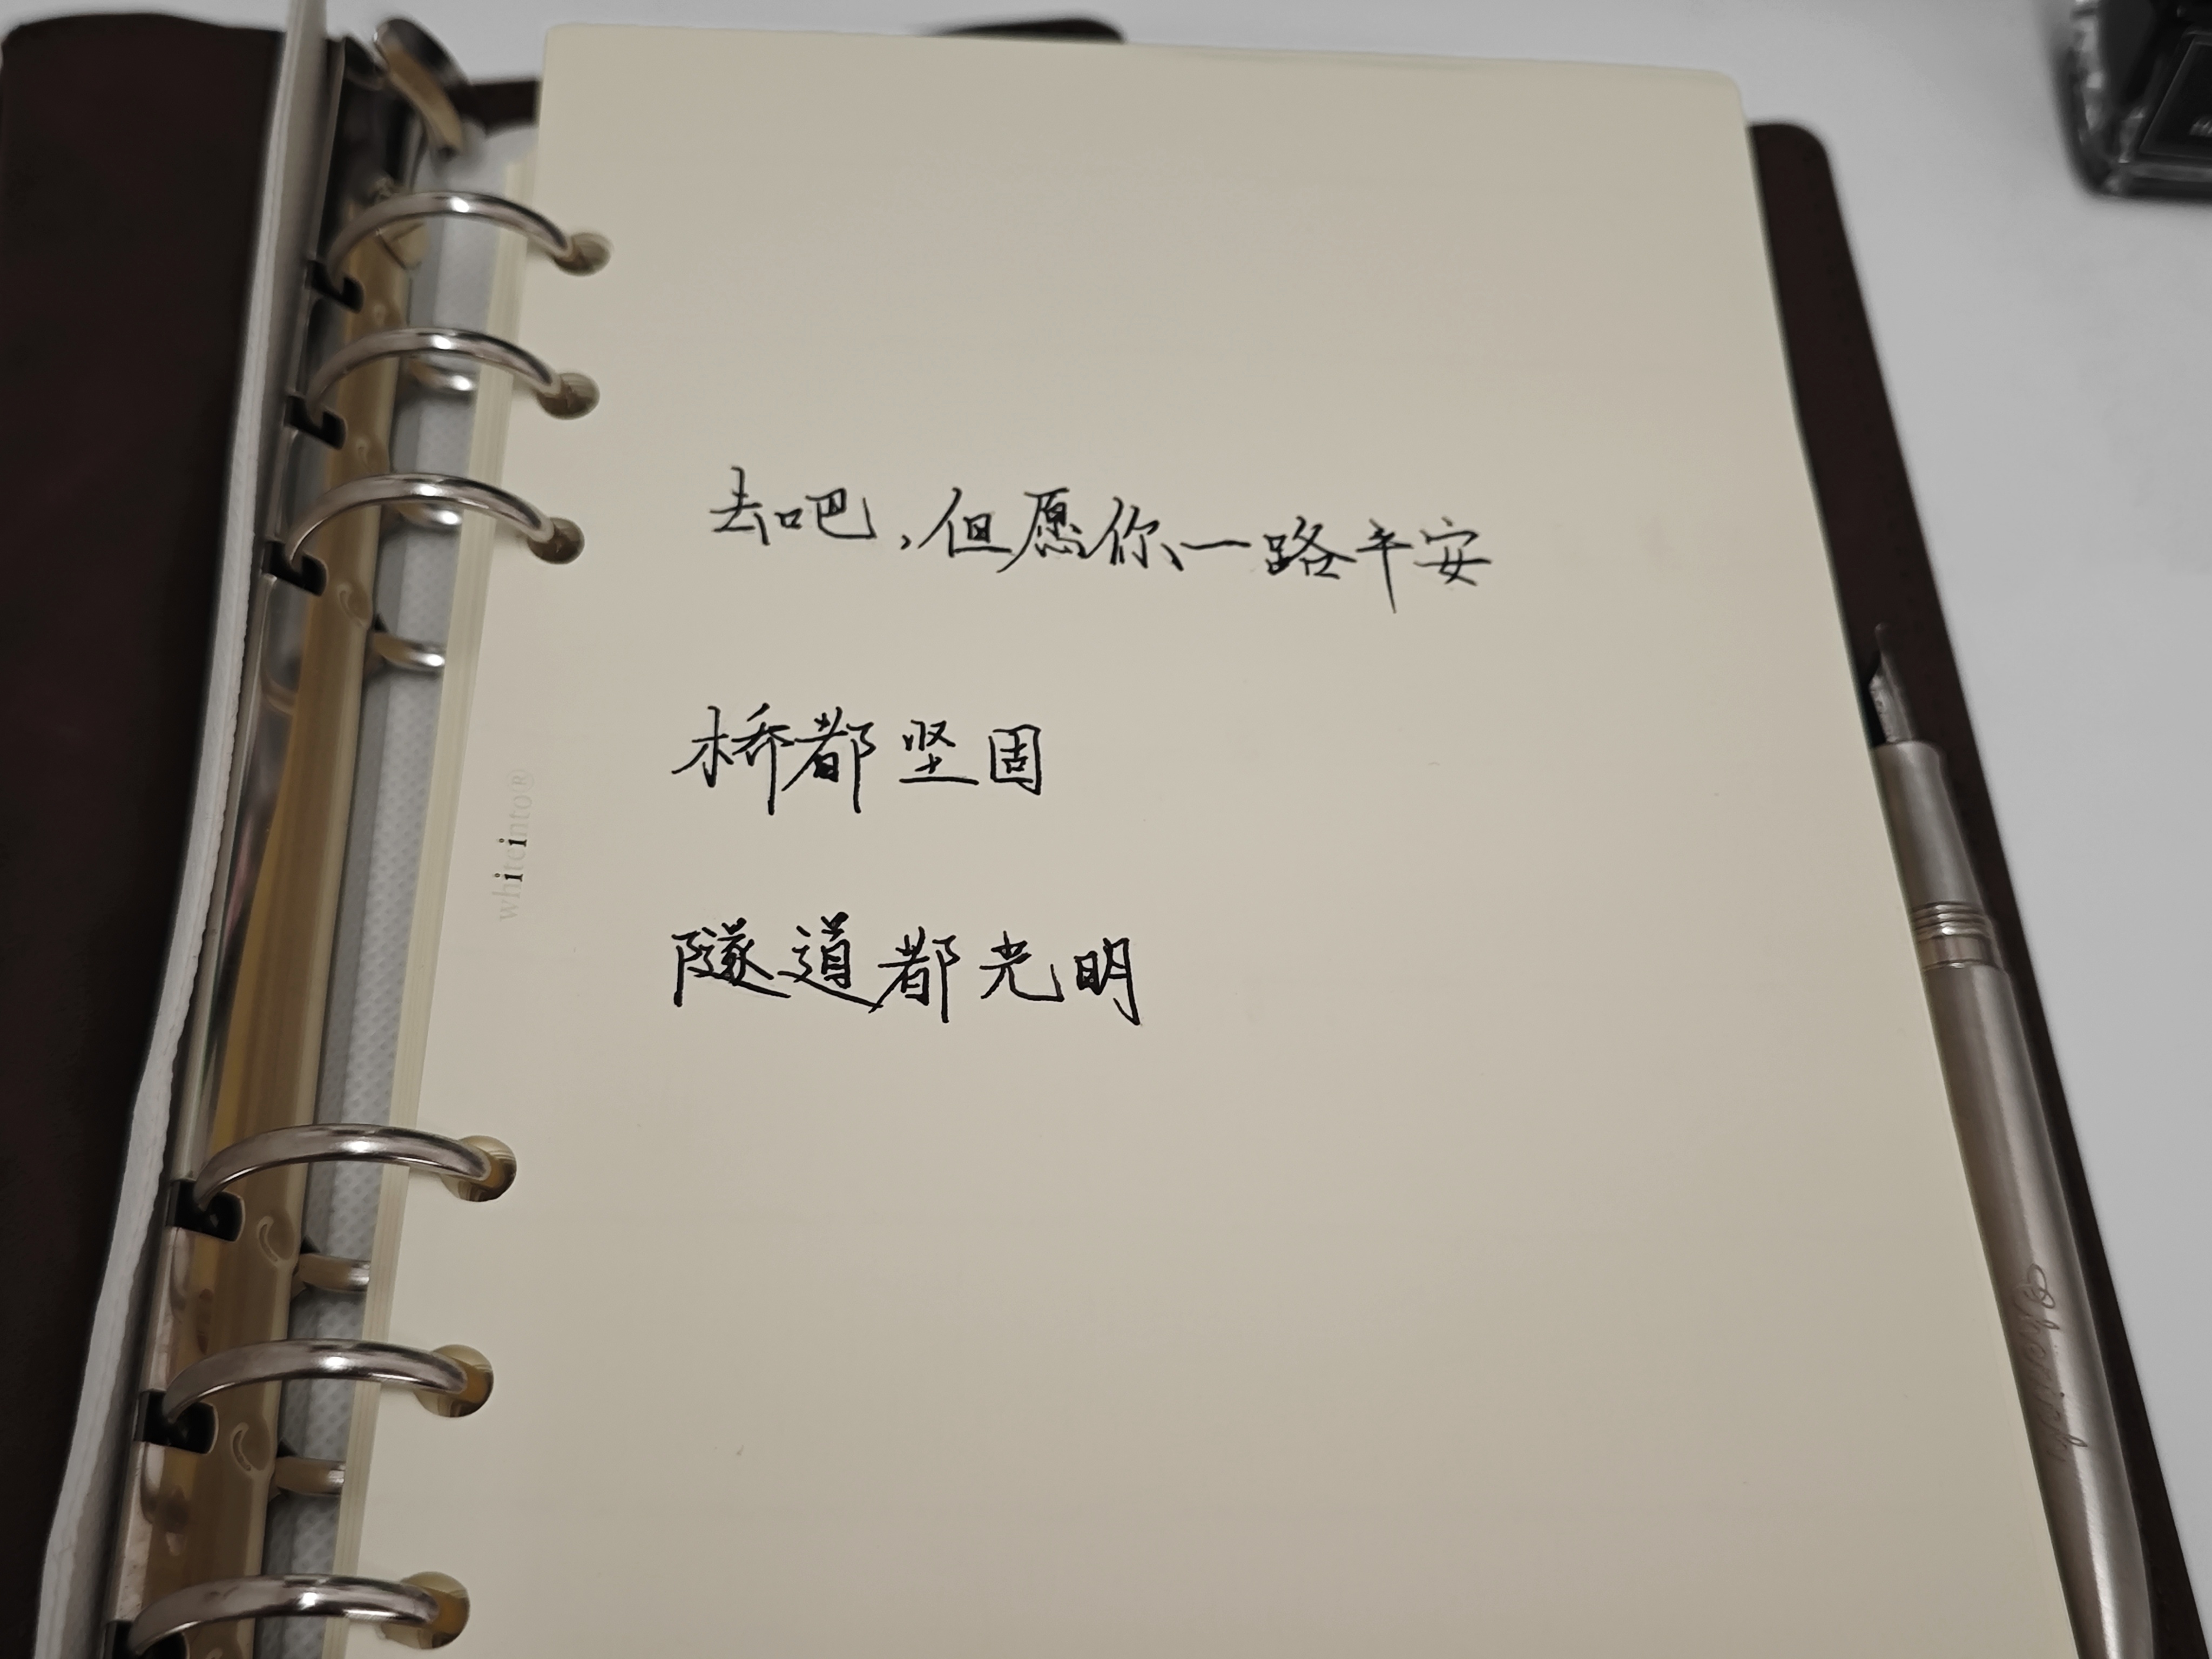 去吧，但愿你一路平安
桥都坚固
隧道都光明
whiteinto®